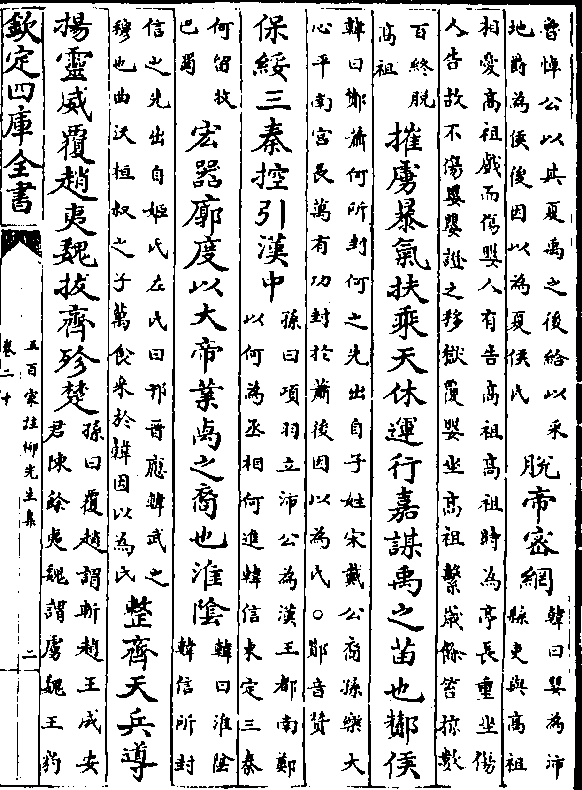 晉悼公以其夏禹之後給以采
地爵為侯後因以為夏侯氏
脫帝密網
韓曰嬰為沛
縣吏與高祖
相愛高祖戲而傷嬰人有告高祖高祖時為亭長重坐傷
人告故不傷嬰嬰證之移獄覆嬰坐高祖繫歲餘笞掠數
百終脫
高祖
摧虜暴氣扶乘天休運行嘉謀禹之苗也酇侯
韓曰酇蕭何所封何之先出自子姓宋戴公裔孫樂大
心平南宮長萬有功封於蕭後因以為氏○酇音贊
保綏三秦控引漢中
孫曰項羽立沛公為漢王都南鄭
以何為丞相何進韓信東定三秦
何留收
巴蜀
宏器廓度以大帝業卨之裔也淮陰
韓曰淮陰
韓信所封
信之先出自姬氏左氏曰邘晉應韓武之
穆也曲沃桓叔之子萬食采於韓因以為氏
整齊天兵導
揚靈威覆趙夷魏拔齊殄楚
孫曰覆趙謂斬趙王成安
君陳餘夷魏謂虜魏王豹
欽定四庫全書
五百家註柳先生集
卷二十
二